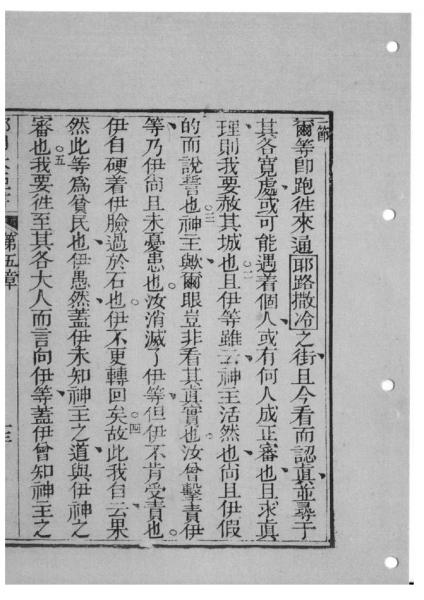 一節
爾等卽跑徃來逼耶路撒冷之街且今看而認眞並尋于
其各寬處或可能遇着個人或有何人成正審也且求眞
理則我要赦其城也二且伊等雖云神主活然也尙且伊假
的而說誓也三神主歟爾眼豈非看其眞實也汝曾擊責伊
等乃伊尙且未憂患也汝消滅了伊等但伊不肯受責也
伊自硬着伊臉過於石也伊不更轉回矣四故此我自云果
然此等爲貧民也伊愚然蓋伊未知神主之道與伊神之
審也五我要徃至其各大人而言向伊等蓋伊曾知神主之
第五章